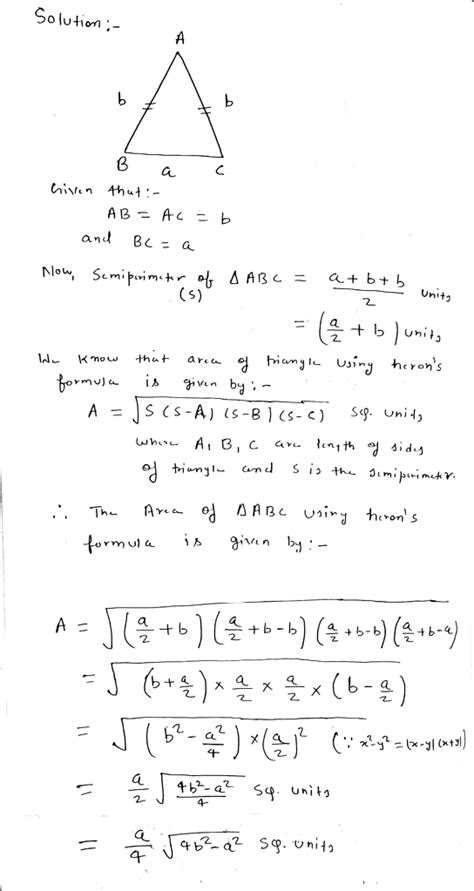 Solution :-
A
b b
B a C
Given that :-
AB = AC = b
and BC = a
Now, Semiperimeter of ΔABC = (a + b + b)/2 units
(S)
= (a/2 + b) units
We know that area of triangle using heron's
formula is given by :-
A = √(S (S-A) (S-B) (S-C)) sq. units
where A, B, C are length of sides
of triangle and S is the semiperimeter.
∴ The Area of ΔABC using heron's
formula is given by :-
A = √((a/2 + b) (a/2 + b - b) (a/2 + b - b) (a/2 + b - a))
= √((b + a/2) × a/2 × a/2 × (b - a/2))
= √((b² - a²/4) × (a/2)²) (∵ x²-y² = (x-y)(x+y))
= a/2 √((4b² - a²)/4) sq. units
= a/4 √(4b² - a²) sq. units